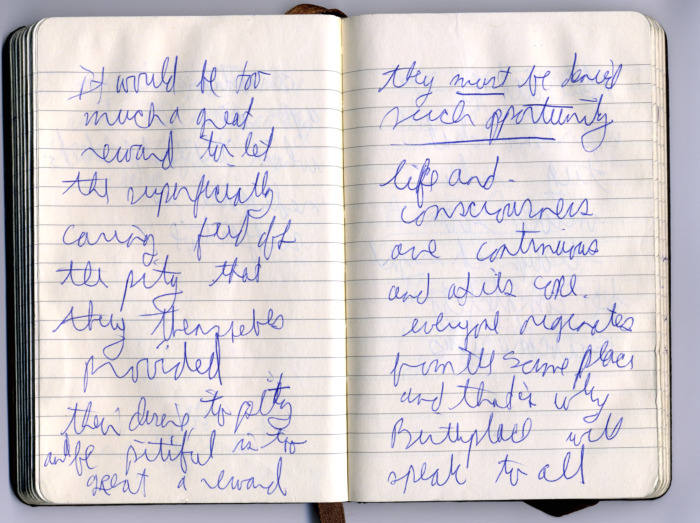 it would be too
much a great
reward to let
the superficially
caring feed off
the pity that
they themselves
provided
their desire to pity
and be pitiful is too
great a reward
they must be denied
such opportunity
life and.
consciousness
are continuous
and at its core.
everyone originates
from the same place
and that is why
Birthplace will
speak to all